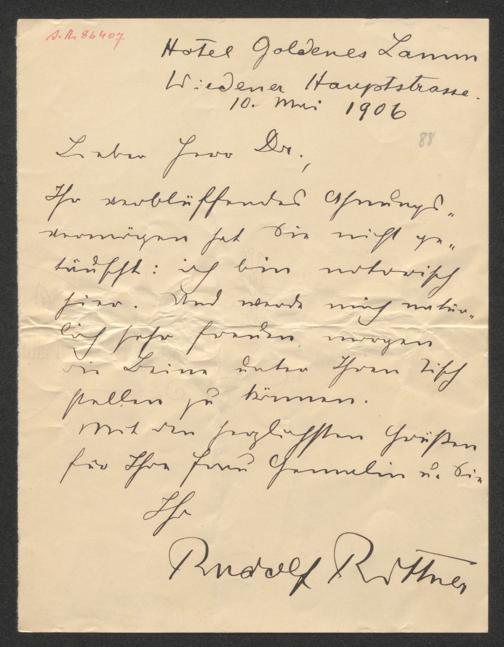 A.R. 86407
Hotel Goldenes Lamm
Wiedener Hauptstrasse.
10. Mai 1906
88
Lieber Herr Dr.,
Ihr verblüffendes Ahnungs-
vermögen hat Sie nicht ge-
täuscht: ich bin notorisch
hier. Und werde mich natür-
lich sehr freuen, morgen
die Beine unter Ihren Tisch
stellen zu können.
Mit den herzlichsten Grüßen
für Ihre Frau Gemalin u. Sie
Ihr
Rudolf Rittner